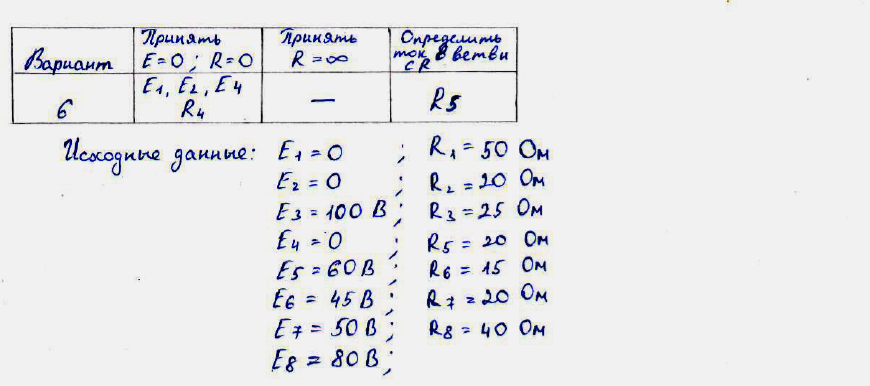 Вариант | Принять E=0; R=0 | Принять R=∞ | Определить ток в ветви с R
6 | E1, E2, E4 R4 | — | R5
Исходные данные: E1=0 ; R1=50 Ом
E2=0 ; R2=20 Ом
E3=100 В ; R3=25 Ом
E4=0 ; R5=20 Ом
E5=60 В ; R6=15 Ом
E6=45 В ; R7=20 Ом
E7=50 В ; R8=40 Ом
E8=80 В ;